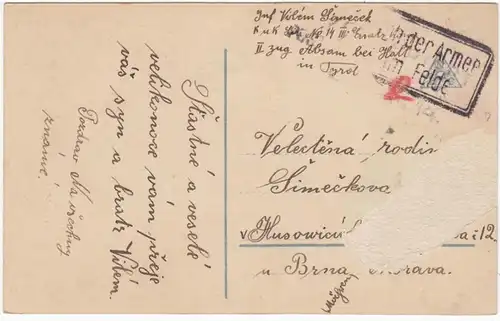 Inf Vilém Šimeček
K u K No. 14 III Ersatz
II zug Absam bei Hall
in Tyrol
der Armee
im Felde
Šťastné a veselé
velikonoce vám přeje
váš syn a bratr Vilém.
Pozdrav na všechny
známé!
Velectěná rodi
Šimečkova
v Husovicích 12
u Brna Morava.